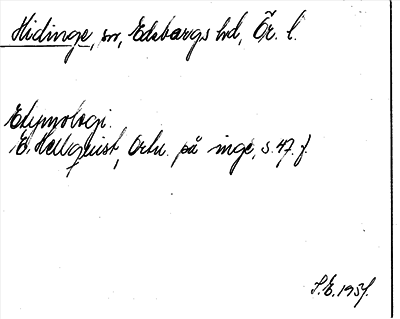 Hidinge, sn, Edsbergs hd, Ör. l.
Etymologi.
E. Hellquist, Ortn. på inge, s. 47. f.
S.E. 1951.